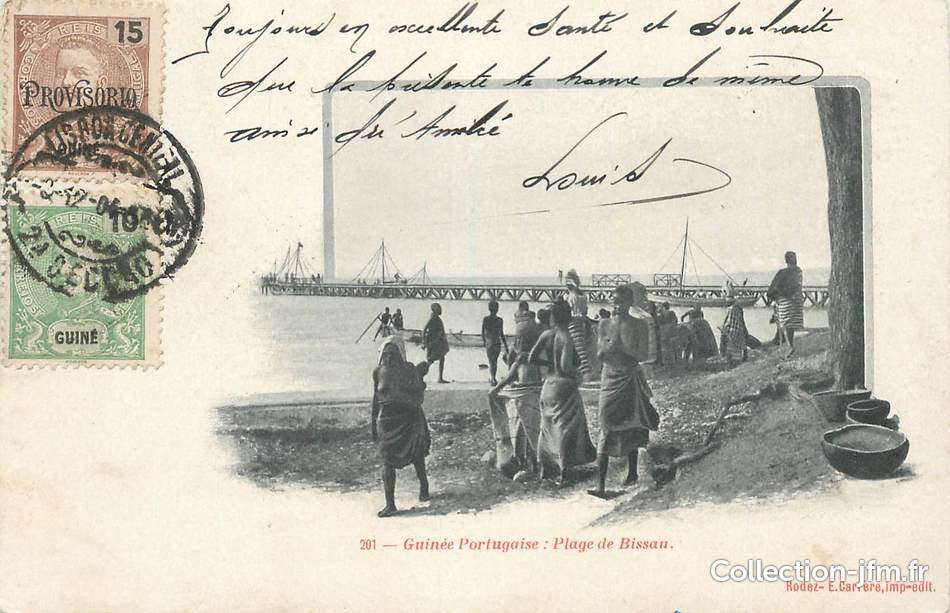 Toujours en excellente Santé et Souhaite
que la présente te trouve de même
Louis
REIS
15
PROVISORIO
GUINÉ
LISBOA CENTRAL
2ª SECÇÃO
REIS
10
GUINÉ
201 — Guinée Portugaise : Plage de Bissau.
Collection-jfm.fr
Rodez- E.Carrère,imp-edit.